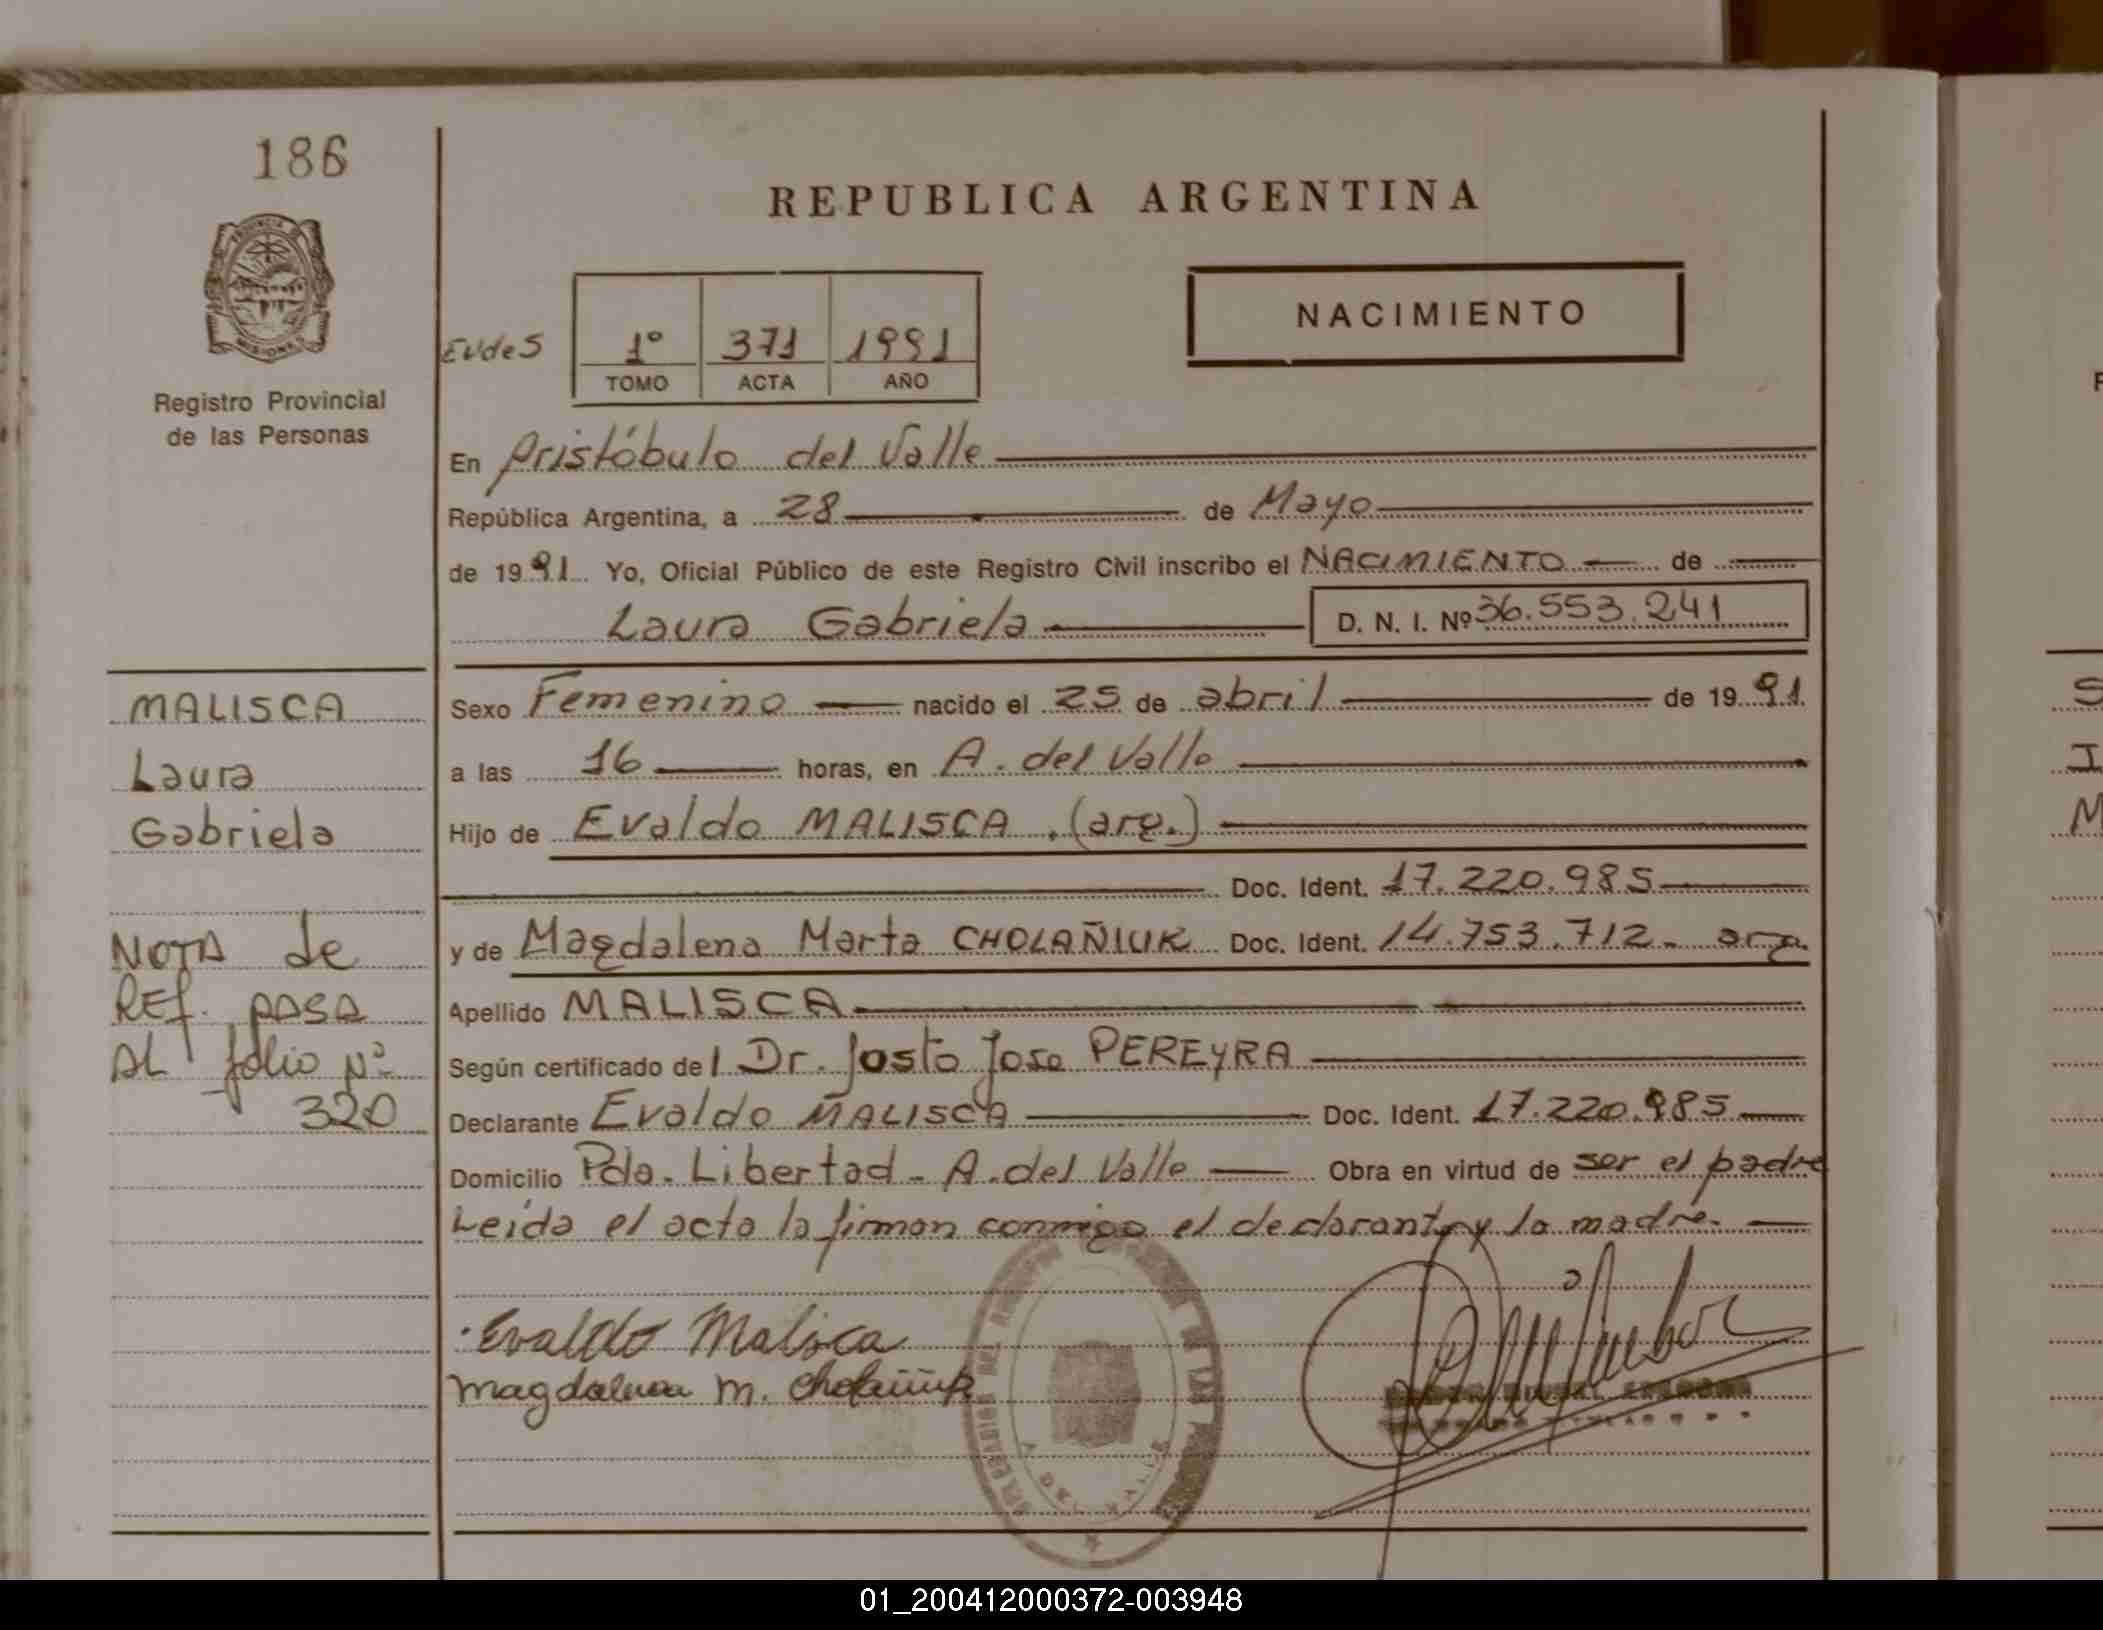 186
REPUBLICA ARGENTINA
PROVINCIA DE
MISIONES
Registro Provincial
de las Personas
NACIMIENTO
1º 371 1991
TOMO ACTA AÑO
En Aristóbulo del Valle
República Argentina, a 28 de Mayo
de 1991 Yo, Oficial Público de este Registro Civil inscribo el NACIMIENTO de
Laura Gabriela D. N. I. Nº 36.553.241
MALISCA
Laura
Gabriela
NOTA de
REf. PASA
AL folio Nº
320
Sexo Femenino nacido el 25 de abril de 1991.
a las 16 horas, en A. del Valle
Hijo de Evaldo MALISCA. (arg.)
Doc. Ident. 17.220.985
y de Magdalena Marta CHOLAÑIUK Doc. Ident. 14.753.712- arg.
Apellido MALISCA
Según certificado del Dr. Justo Jose PEREYRA
Declarante Evaldo MALISCA Doc. Ident. 17.220.985
Domicilio Pda. Libertad - A. del Valle Obra en virtud de ser el padre
Leída el acta la firman conmigo el declarante y la madre.
Evaldo Malisca
Magdalena M. Cholañiuk
DE LAS
A. DEL VALLE
01_200412000372-003948